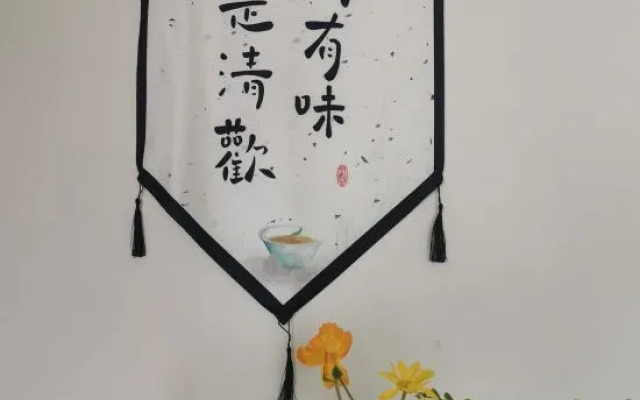 有味
是清歡